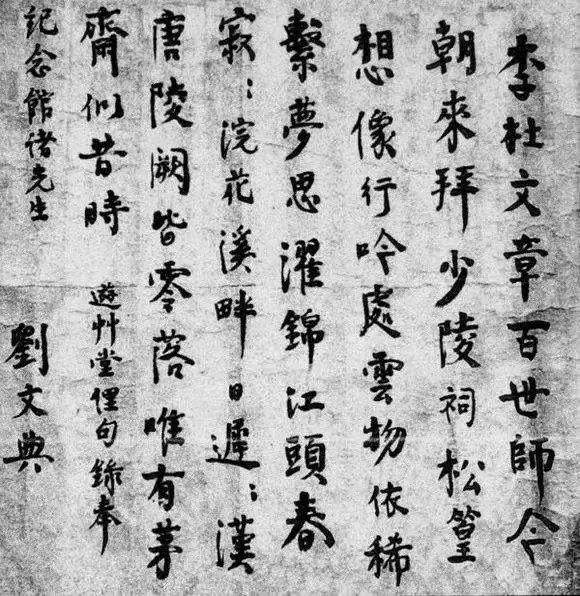 李杜文章百世師今
朝來拜少陵祠松篁
想像行吟處雲物依稀
繫夢思濯錦江頭春
寂〻浣花溪畔日遲〻漢
唐陵闕皆零落唯有茅
齋似昔時 遊艸堂俚句錄奉
紀念館諸先生
劉文典